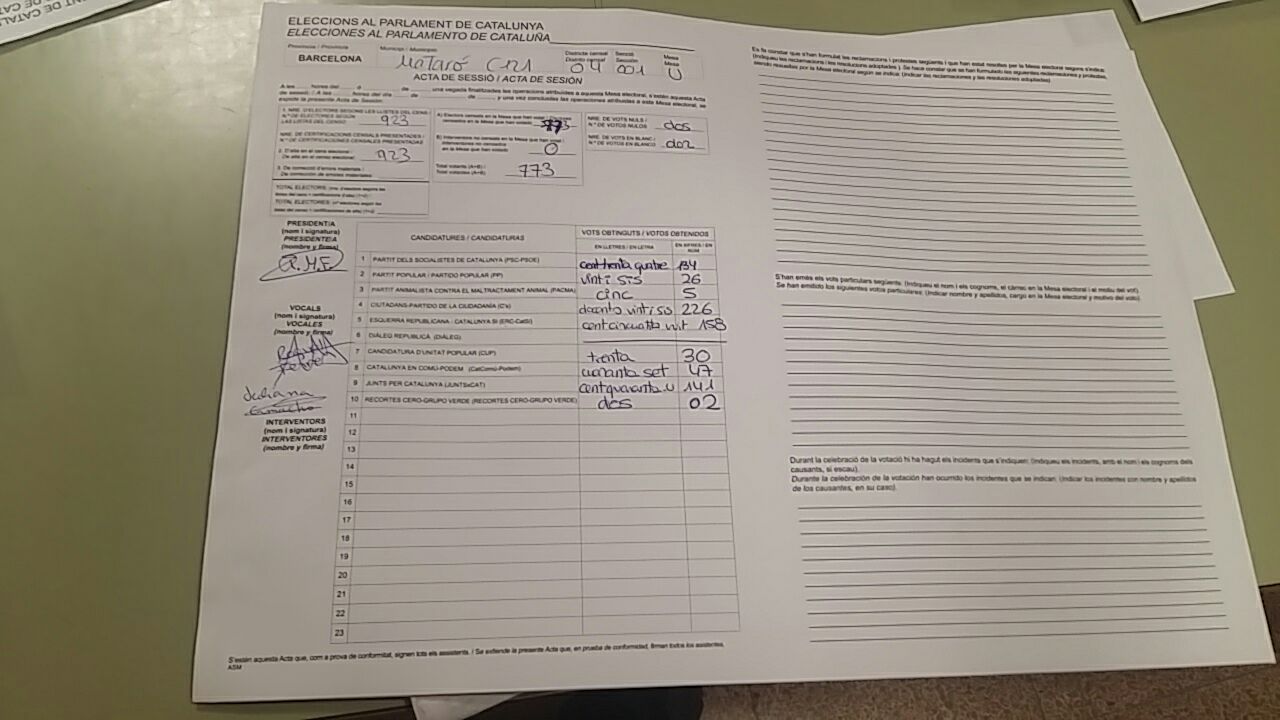 ELECCIONS AL PARLAMENT DE CATALUNYA
ELECCIONES AL PARLAMENTO DE CATALUÑA
Província / Provincia
BARCELONA
Municipi / Municipio
Mataró
Districte censal
Distrito censal
04
Secció
Sección
001
Mesa
Mesa
U
ACTA DE SESSIÓ / ACTA DE SESIÓN
una vegada finalitzades les operacions atribuïdes a aquesta Mesa electoral, s'estén aquesta Acta
y una vez concluidas las operaciones atribuidas a esta Mesa electoral, se
expide la presente Acta de Sesión:
1. NRE. D'ELECTORS SEGONS LES LLISTES DEL CENS /
N.º DE ELECTORES SEGÚN
LAS LISTAS DEL CENSO
923
NRE. DE CERTIFICACIONS CENSALS PRESENTADES /
N.º DE CERTIFICACIONES CENSALES PRESENTADAS
2. D'alta en el cens electoral /
De alta en el censo electoral
923
3. De correcció d'errors materials /
De corrección de errores materiales
TOTAL ELECTORS
TOTAL ELECTORES
773
0
Total votants (A+B) /
Total votantes (A+B)
773
NRE. DE VOTS NULS /
N.º DE VOTOS NULOS
dos
NRE. DE VOTS EN BLANC /
N.º DE VOTOS EN BLANCO
dos
PRESIDENT/A
(nom i signatura)
PRESIDENTE/A
(nombre y firma)
VOCALS
(nom i signatura)
VOCALES
(nombre y firma)
Juliana
Camacho
INTERVENTORS
(nom i signatura)
INTERVENTORES
(nombre y firma)
CANDIDATURES / CANDIDATURAS
VOTS OBTINGUTS / VOTOS OBTENIDOS
EN LLETRES / EN LETRA
EN XIFRES / EN NÚM
1 PARTIT DELS SOCIALISTES DE CATALUNYA (PSC-PSOE) cent trenta quatre 134
2 PARTIT POPULAR / PARTIDO POPULAR (PP) vint i sis 26
3 PARTIT ANIMALISTA CONTRA EL MALTRACTAMENT ANIMAL (PACMA) cinc 5
4 CIUTADANS-PARTIDO DE LA CIUDADANÍA (C's) dscents vint i sis 226
5 ESQUERRA REPUBLICANA - CATALUNYA SÍ (ERC-CatSí) cent cincuanta vuit 158
6 DIÀLEG REPUBLICÀ (DIÀLEG)
7 CANDIDATURA D'UNITAT POPULAR (CUP) trenta 30
8 CATALUNYA EN COMÚ-PODEM (CatComú-Podem) cuaranta set 47
9 JUNTS PER CATALUNYA (JUNTSxCAT) cent quaranta u 141
10 RECORTES CERO-GRUPO VERDE (RECORTES CERO-GRUPO VERDE) dos 02
11
12
13
14
15
16
17
18
19
20
21
22
23
S'estén aquesta Acta que, com a prova de conformitat, signen tots els assistents. / Se extiende la presente Acta que, en prueba de conformidad, firman todos los asistentes.
ASM
Es fa constar que s'han formulat les reclamacions i protestes següents i que han estat resoltes per la Mesa electoral segons s'indica:
(Indiqueu les reclamacions i les resolucions adoptades). Se hace constar que se han formulado las siguientes reclamaciones y protestas,
siendo resueltas por la Mesa electoral según se indica: (Indicar las reclamaciones y las resoluciones adoptadas).
S'han emès els vots particulars següents: (Indiqueu el nom i els cognoms, el càrrec en la Mesa electoral i el motiu del vot).
Se han emitido los siguientes votos particulares: (Indicar nombre y apellidos, cargo en la Mesa electoral y motivo del voto).
Durant la celebració de la votació hi ha hagut els incidents que s'indiquen: (Indiqueu els incidents, amb el nom i els cognoms dels
causants, si escau).
Durante la celebración de la votación han ocurrido los incidentes que se indican: (Indicar los incidentes con nombre y apellidos
de los causantes, en su caso).